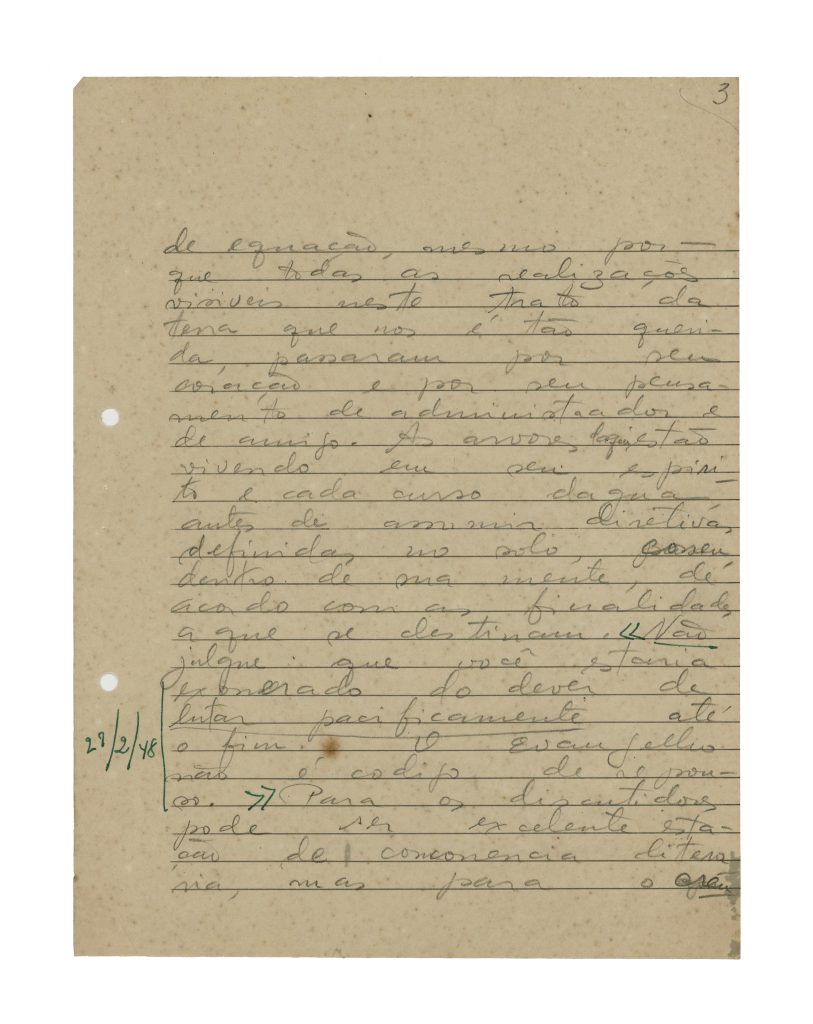 3
de equação, mesmo por-
que todas as realizações
visiveis neste trato da
terra que nos é tão queri-
da, passaram por seu
coração e por seu pensa-
mento de administrador e
de amigo. As arvores, estão
vivendo em seu espiri-
to e cada curso dagua
antes de assumir diretivas
definidas no solo,
dentro de sua mente, de
acordo com as finalidades
a que se destinam. << Não
julgue que você estaria
exonerado do dever de
lutar pacificamente até
o fim. O Evangelho
não é codigo de repou-
so. >> Para os discutidores
pode ser excelente esta-
ção de concorrencia litera
ria, mas para o
/2/48